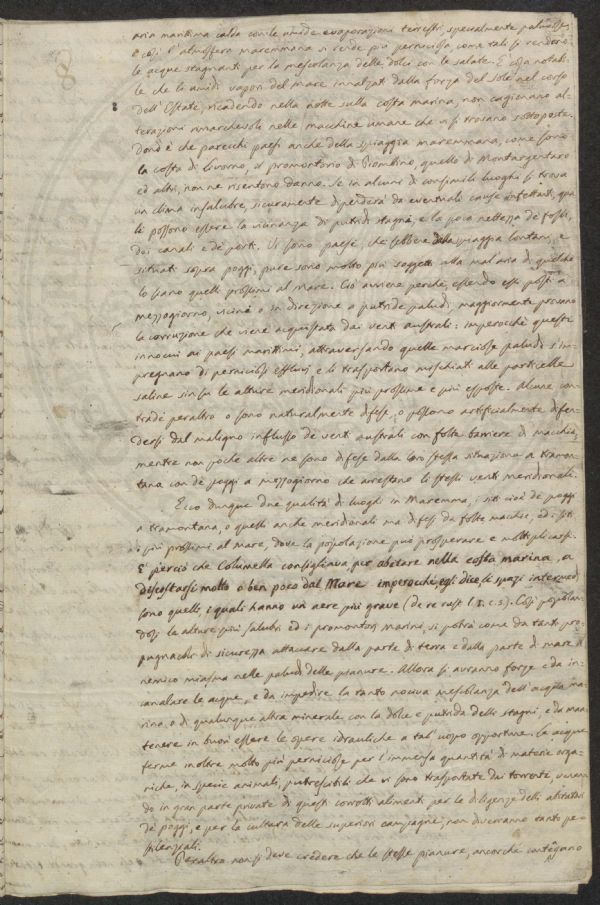 aria marittima calda con le umide evaporazioni terrestri, specialmente palustri;
e così l'atmosfera maremmana si rende più perniciosa, come tali si rendono
le acque stagnanti per la mescolanza delle dolci con le salate. E cosa notabi-
le che li umidi vapori del mare innalzati dalla forza del sole nel corso
dell'Estate, ricadendo nella notte sulla costa marina, non cagionano al-
terazioni rimarchevoli nelle macchine umane che vi si trovano sottoposte.
Dond'è che parecchi paesi anche della spiaggia maremmana, come sono
la costa di Livorno, il promontorio di Piombino, quello di Montargentaro
ed altri, non ne risentono danno. Se in alcuni di consimili luoghi si trova
un clima insalubre, sicuramente dipenderà da eventuali cause infettanti, qua-
li possono essere la vicinanza di putridi stagni, e la poca nettezza de fossi,
dei canali e de porti. Vi sono paesi, che sebbene dalla spiaggia lontani, e
situati sopra poggi, pure sono molto più soggetti alla mal'aria di quello che
lo siano quelli prossimi al mare. Ciò avviene perchè, essendo essi posti a
mezzogiorno, vicini o in direzione a putride paludi, maggiormente provano
la corruzione che viene acquistata dai venti australi: imperocchè questi
innocui ai paesi marittimi, attraversando quelle marciose paludi s'im-
pregnano di perniciosi effluvj e li trasportano mischiati alle particelle
saline sin su le alture meridionali più prossime e più esposte. Alcune con-
trade peraltro o sono naturalmente difese, o possono artificialmente difen-
dersi dal maligno influsso de venti australi con folte barriere di macchia,
mentre non poche altre ne sono difese dalla loro stessa situazione a tramon-
tana con de poggi a mezzogiorno che arrestano li stessi venti meridionali.
Ecco dunque due qualità di luoghi in Maremma, i siti cioè de poggi
a tramontana, o quelli anche meridionali ma difesi da folte macchie, ed i siti
i più prossimi al mare, dove la popolazione può prosperare e moltiplicarsi.
E perciò che Columella consigliava, per abitare nella costa marina, a
discostarsi molto o ben poco dal Mare imperochè, egli dice, li spazi intermed
sono quelli, i quali hanno un aere più grave (de re rust l. I. c. 5). Così popolan-
dosi le alture più salubri ed i promontorj marini, si potrà come da tanti pro-
pugnacoli di sicurezza attaccare dalla parte di terra e dalla parte di mare il
nemico miasma nelle paludi delle pianure. Allora si avranno forze e da in-
canalare le acque, e da impedire la tanto nociva mescolanza dell'acqua ma-
rina, o di qualunque altra minerale con la dolce e putrida delli stagni, e da man-
tenere in buon essere le opere idrauliche a tal'uopo opportune. Le acque
ferme inoltre molto più perniciose per l'immensa quantità di materie orga-
niche, in specie animali, putrescibili che vi sono trasportate dai torrenti, venen-
do in gran parte private di questi corrotti alimenti per le diligenze delli abitatori
de poggi, e per la cultura delle superiori campagne, non diverranno tanto pe-
stilenziali.
Peraltro non si deve credere che le stesse pianure, ancorchè contengano